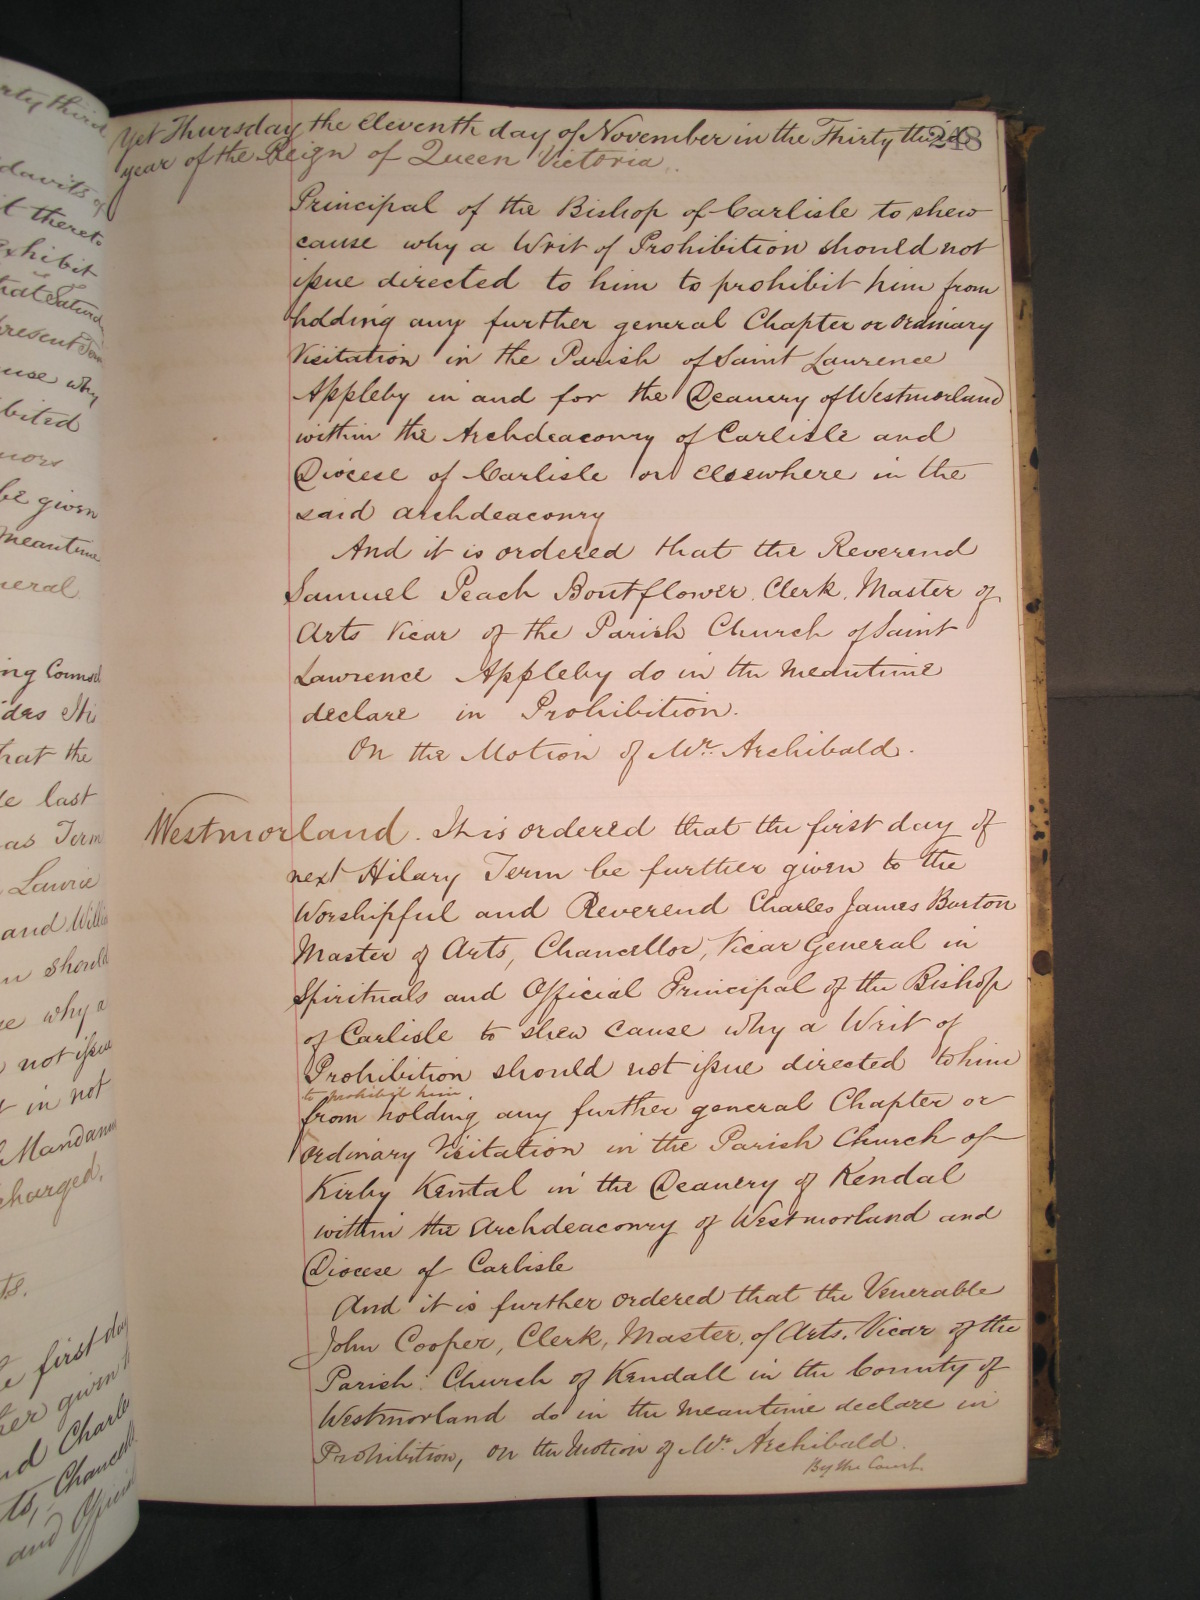 rty third
davits of
it thereto
exhibit
hat Saturd
present Term
use why
bited
nors
be given
meantime
neral
ing Counsel
ides Mr
hat the
le last
as Term
Lawrie
and Willi
n should
e why a
not issue
t in not
Mandam
charged.
ts.
e first day
her given t
nd Charle
ts, Chancell
and Official
Yet Thursday the Eleventh day of November in the Thirty third
248
year of the Reign of Queen Victoria.
Principal of the Bishop of Carlisle to shew
cause why a Writ of Prohibition should not
issue directed to him to prohibit him from
holding any further general Chapter or Ordinary
Visitation in the Parish of Saint Lawrence
Appleby in and for the Deanery of Westmorland
within the Archdeaconry of Carlisle and
Diocese of Carlisle or elsewhere in the
said archdeaconry
And it is ordered that the Reverend
Samuel Peach Boutflower, Clerk, Master of
Arts Vicar of the Parish Church of Saint
Lawrence Appleby do in the meantime
declare in Prohibition.
On the Motion of Mr. Archibald.
Westmorland. It is ordered that the first day of
next Hilary Term be further given to the
Worshipful and Reverend Charles James Burton
Master of Arts, Chancellor, Vicar General in
Spirituals and Official Principal of the Bishop
of Carlisle to shew cause why a Writ of
Prohibition should not issue directed to him
to prohibit him
from holding any further general Chapter or
ordinary Visitation in the Parish Church of
Kirby Kental in the Deanery of Kendal
within the Archdeaconry of Westmorland and
Diocese of Carlisle
And it is further ordered that the Venerable
John Cooper, Clerk, Master of Arts, Vicar of the
Parish Church of Kendall in the County of
Westmorland do in the meantime declare in
Prohibition, on the Motion of Mr. Archibald.
By the Court